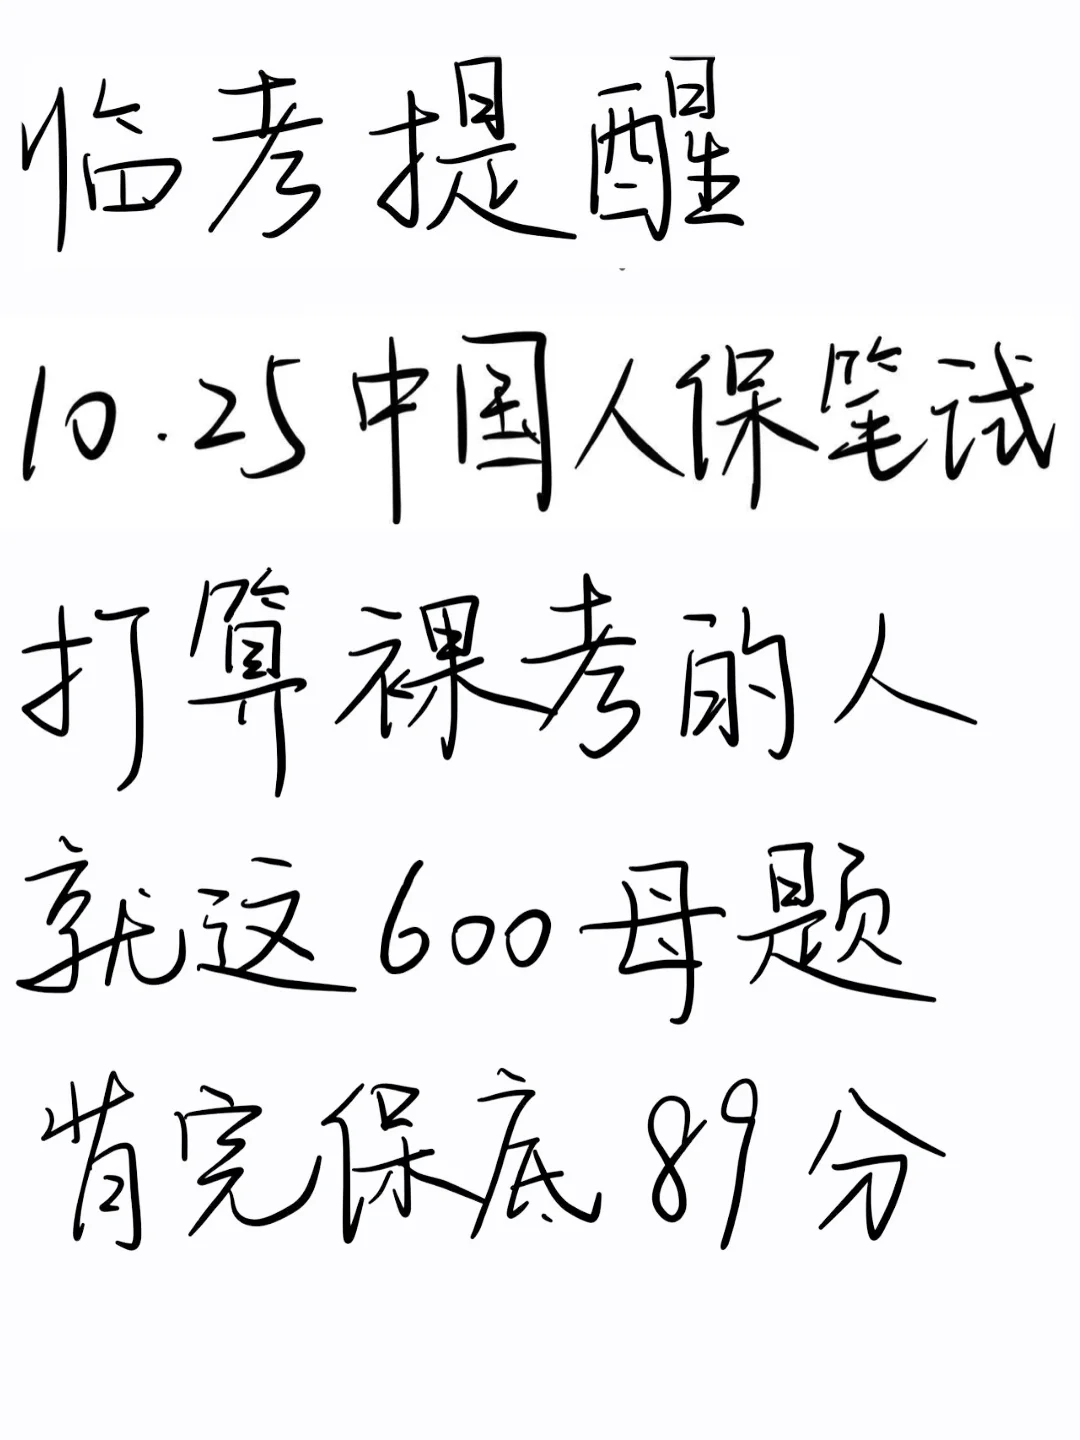 临考提醒
10.25中国人保笔试
打算裸考的人
就这600母题
背完保底89分